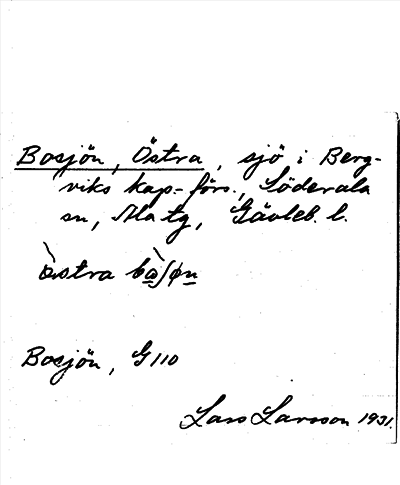 Bosjön, Östra, sjö i Berg-
viks kap-förs., Söderala
sn, Ala tg, Gävleb. l.
östra bɑ̀ʃøn
Bosjön, G 110
Lars Larsson 1931.